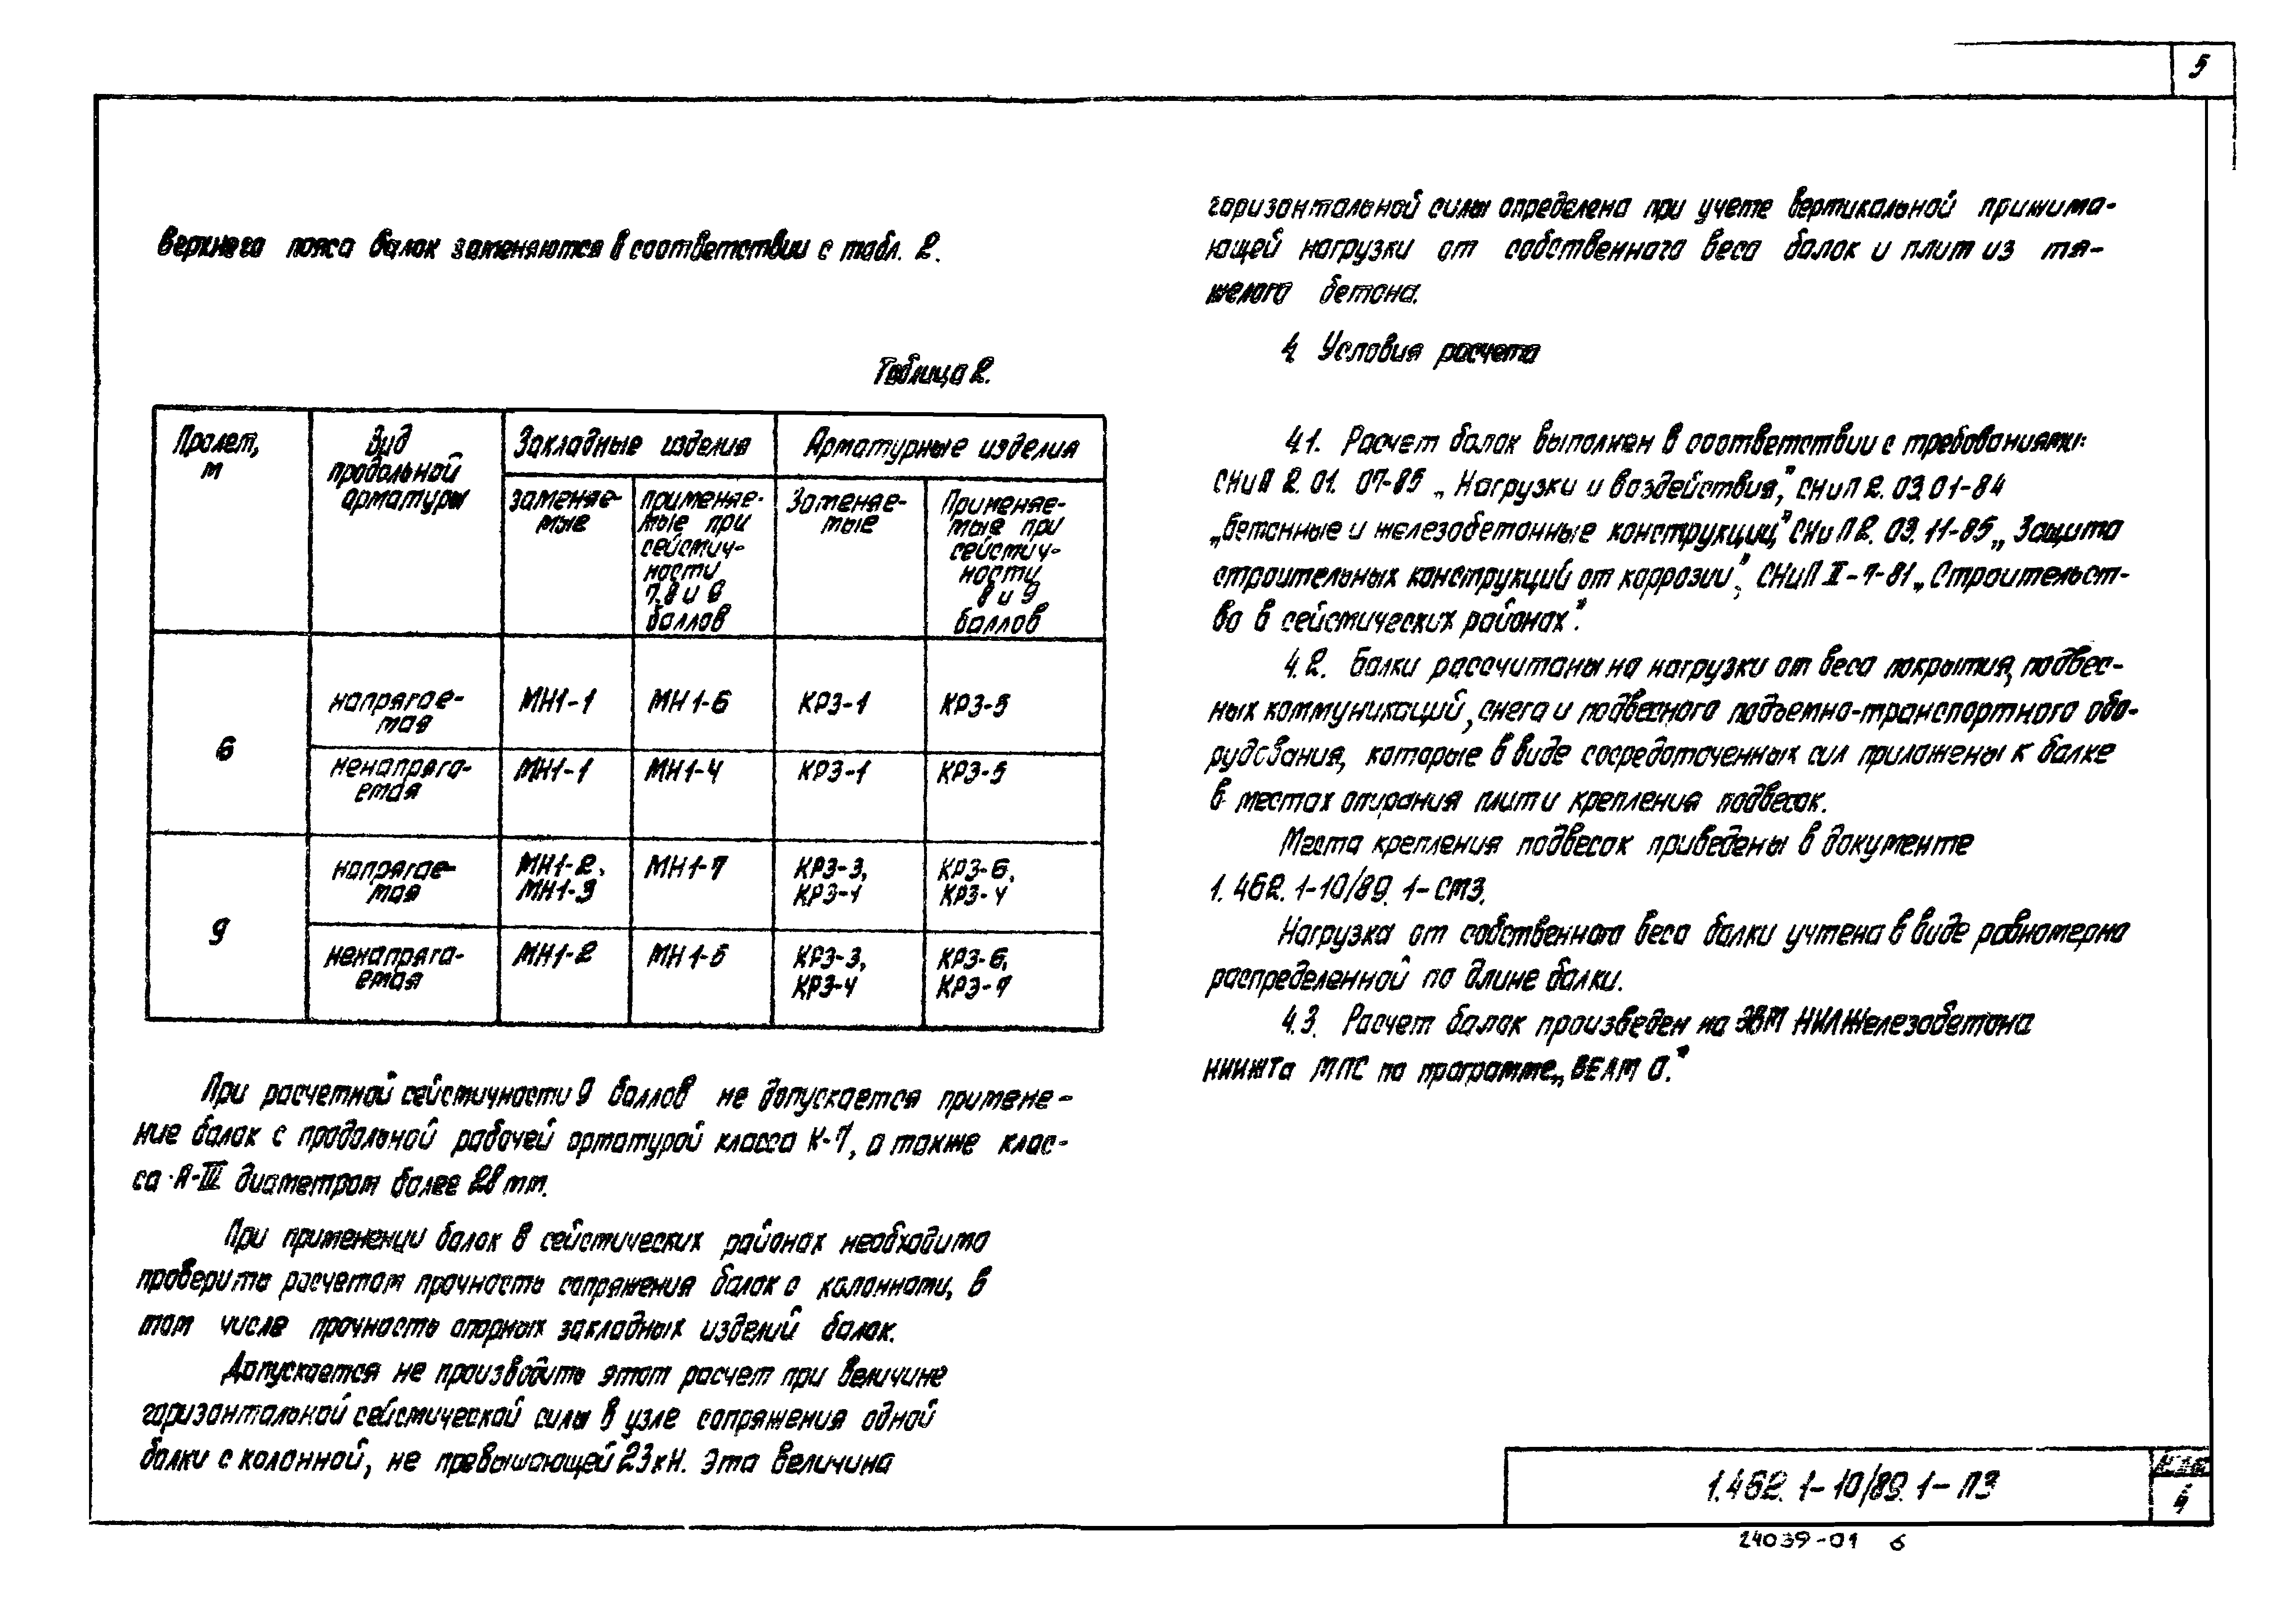 5
верхнего пояса балок заменяются в соответствии с табл. 2.
Таблица 2.
Пролет, м
Вид продольной арматуры
Закладные изделия
Арматурные изделия
заменяе-
мые
применяе-
мые при
сейсмич-
ности
7,8 и 9
баллов
Заменяе-
мые
Применяе-
мые при
сейсмич-
ности
8 и 9
баллов
6
напрягае-
мая
МН1-1
МН1-6
КР3-1
КР3-5
ненапряга-
емая
МН1-1
МН1-4
КР3-1
КР3-5
9
напрягае-
мая
МН1-2,
МН1-3
МН1-7
КР3-3,
КР3-4
КР3-6,
КР3-4
ненапряга-
емая
МН1-2
МН1-5
КР3-3,
КР3-4
КР3-6,
КР3-7
При расчетной сейсмичности 9 баллов не допускается примене-
ние балок с продольной рабочей арматурой класса К-7, а также клас-
са А-III диаметром более 28 мм.
При применении балок в сейсмических районах необходимо
проверить расчетом прочность сопряжения балок с колоннами, в
том числе прочность опорных закладных изделий балок.
Допускается не производить этот расчет при величине
горизонтальной сейсмической силы в узле сопряжения одной
балки с колонной, не превышающей 23 кН. Эта величина
горизонтальной силы определена при учете вертикальной прижима-
ющей нагрузки от собственного веса балок и плит из тя-
желого бетона.
4 Условия расчета
4.1. Расчет балок выполнен в соответствии с требованиями:
СНиП 2.01.07-85 „Нагрузки и воздействия", СНиП 2.03.01-84
„Бетонные и железобетонные конструкции", СНиП 2.03.11-85 „Защита
строительных конструкций от коррозии", СНиП II-7-81 „Строительст-
во в сейсмических районах".
4.2. Балки рассчитаны на нагрузки от веса покрытия, подвес-
ных коммуникаций, снега и подвесного подъемно-транспортного обо-
рудования, которые в виде сосредоточенных сил приложены к балке
в местах опирания плит и крепления подвесок.
Места крепления подвесок приведены в документе
1.462.1-10/89.1-СМ3.
Нагрузка от собственного веса балки учтена в виде равномерно
распределенной по длине балки.
4.3. Расчет балок произведен на ЭВМ НИЛ Железобетона
НИИЖТа МПС по программе „BEAM
1.462.1-10/89.1-ПЗ
Лист
4
24039-01 6